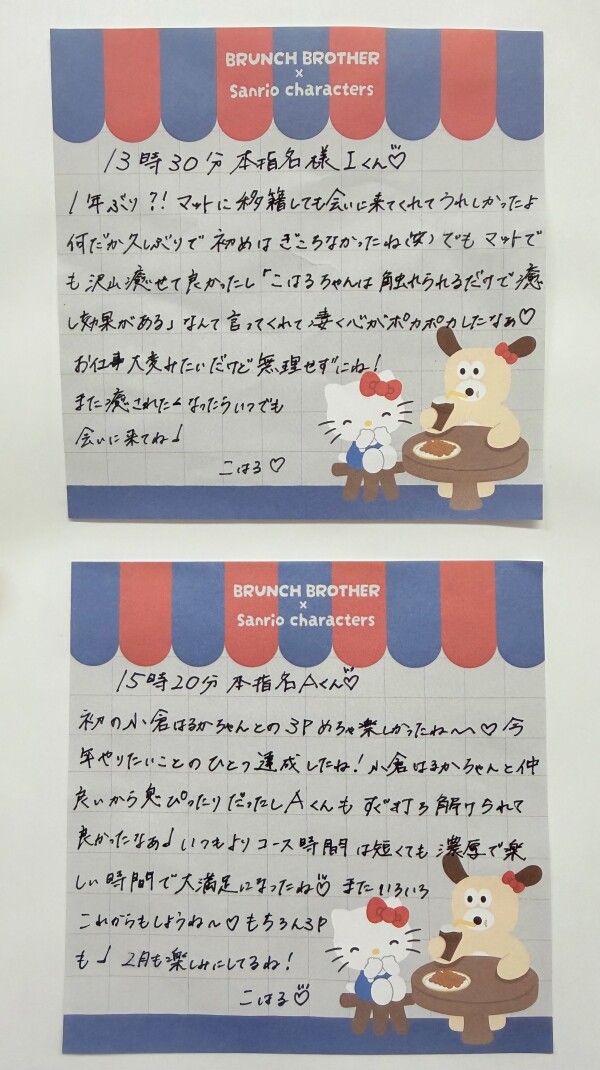 BRUNCH BROTHER
×
Sanrio characters
13時30分本指名様Iくん♡
1年ぶり?!マットに移籍しても会いに来てくれてうれしかったよ
何だか久しぶりで初めはぎこちなかったね(笑)でもマットで
も沢山癒せて良かったし「こはるちゃんは触れられるだけで癒
し効果がある」なんて言ってくれて凄く心がポカポカしたなぁ♡
お仕事大変みたいだけど無理せずにね!
また癒されたくなったらいつでも
会いに来てね♩
こはる♡
BRUNCH BROTHER
×
Sanrio characters
15時20分本指名Aくん♡
初の小倉はるかちゃんとの3Pめちゃ楽しかったね〜♡今
年やりたいことのひとつ達成したね!小倉はるかちゃんと仲
良いから息ぴったりだったしAくんもすぐ打ち解けられて
良かったなぁ♩いつもよりコース時間は短くても濃厚で楽
しい時間で大満足になったね♡またいろいろ
これからもしようね〜♡もちろん3P
も♩2月も楽しみにしてるね!
こはる♡